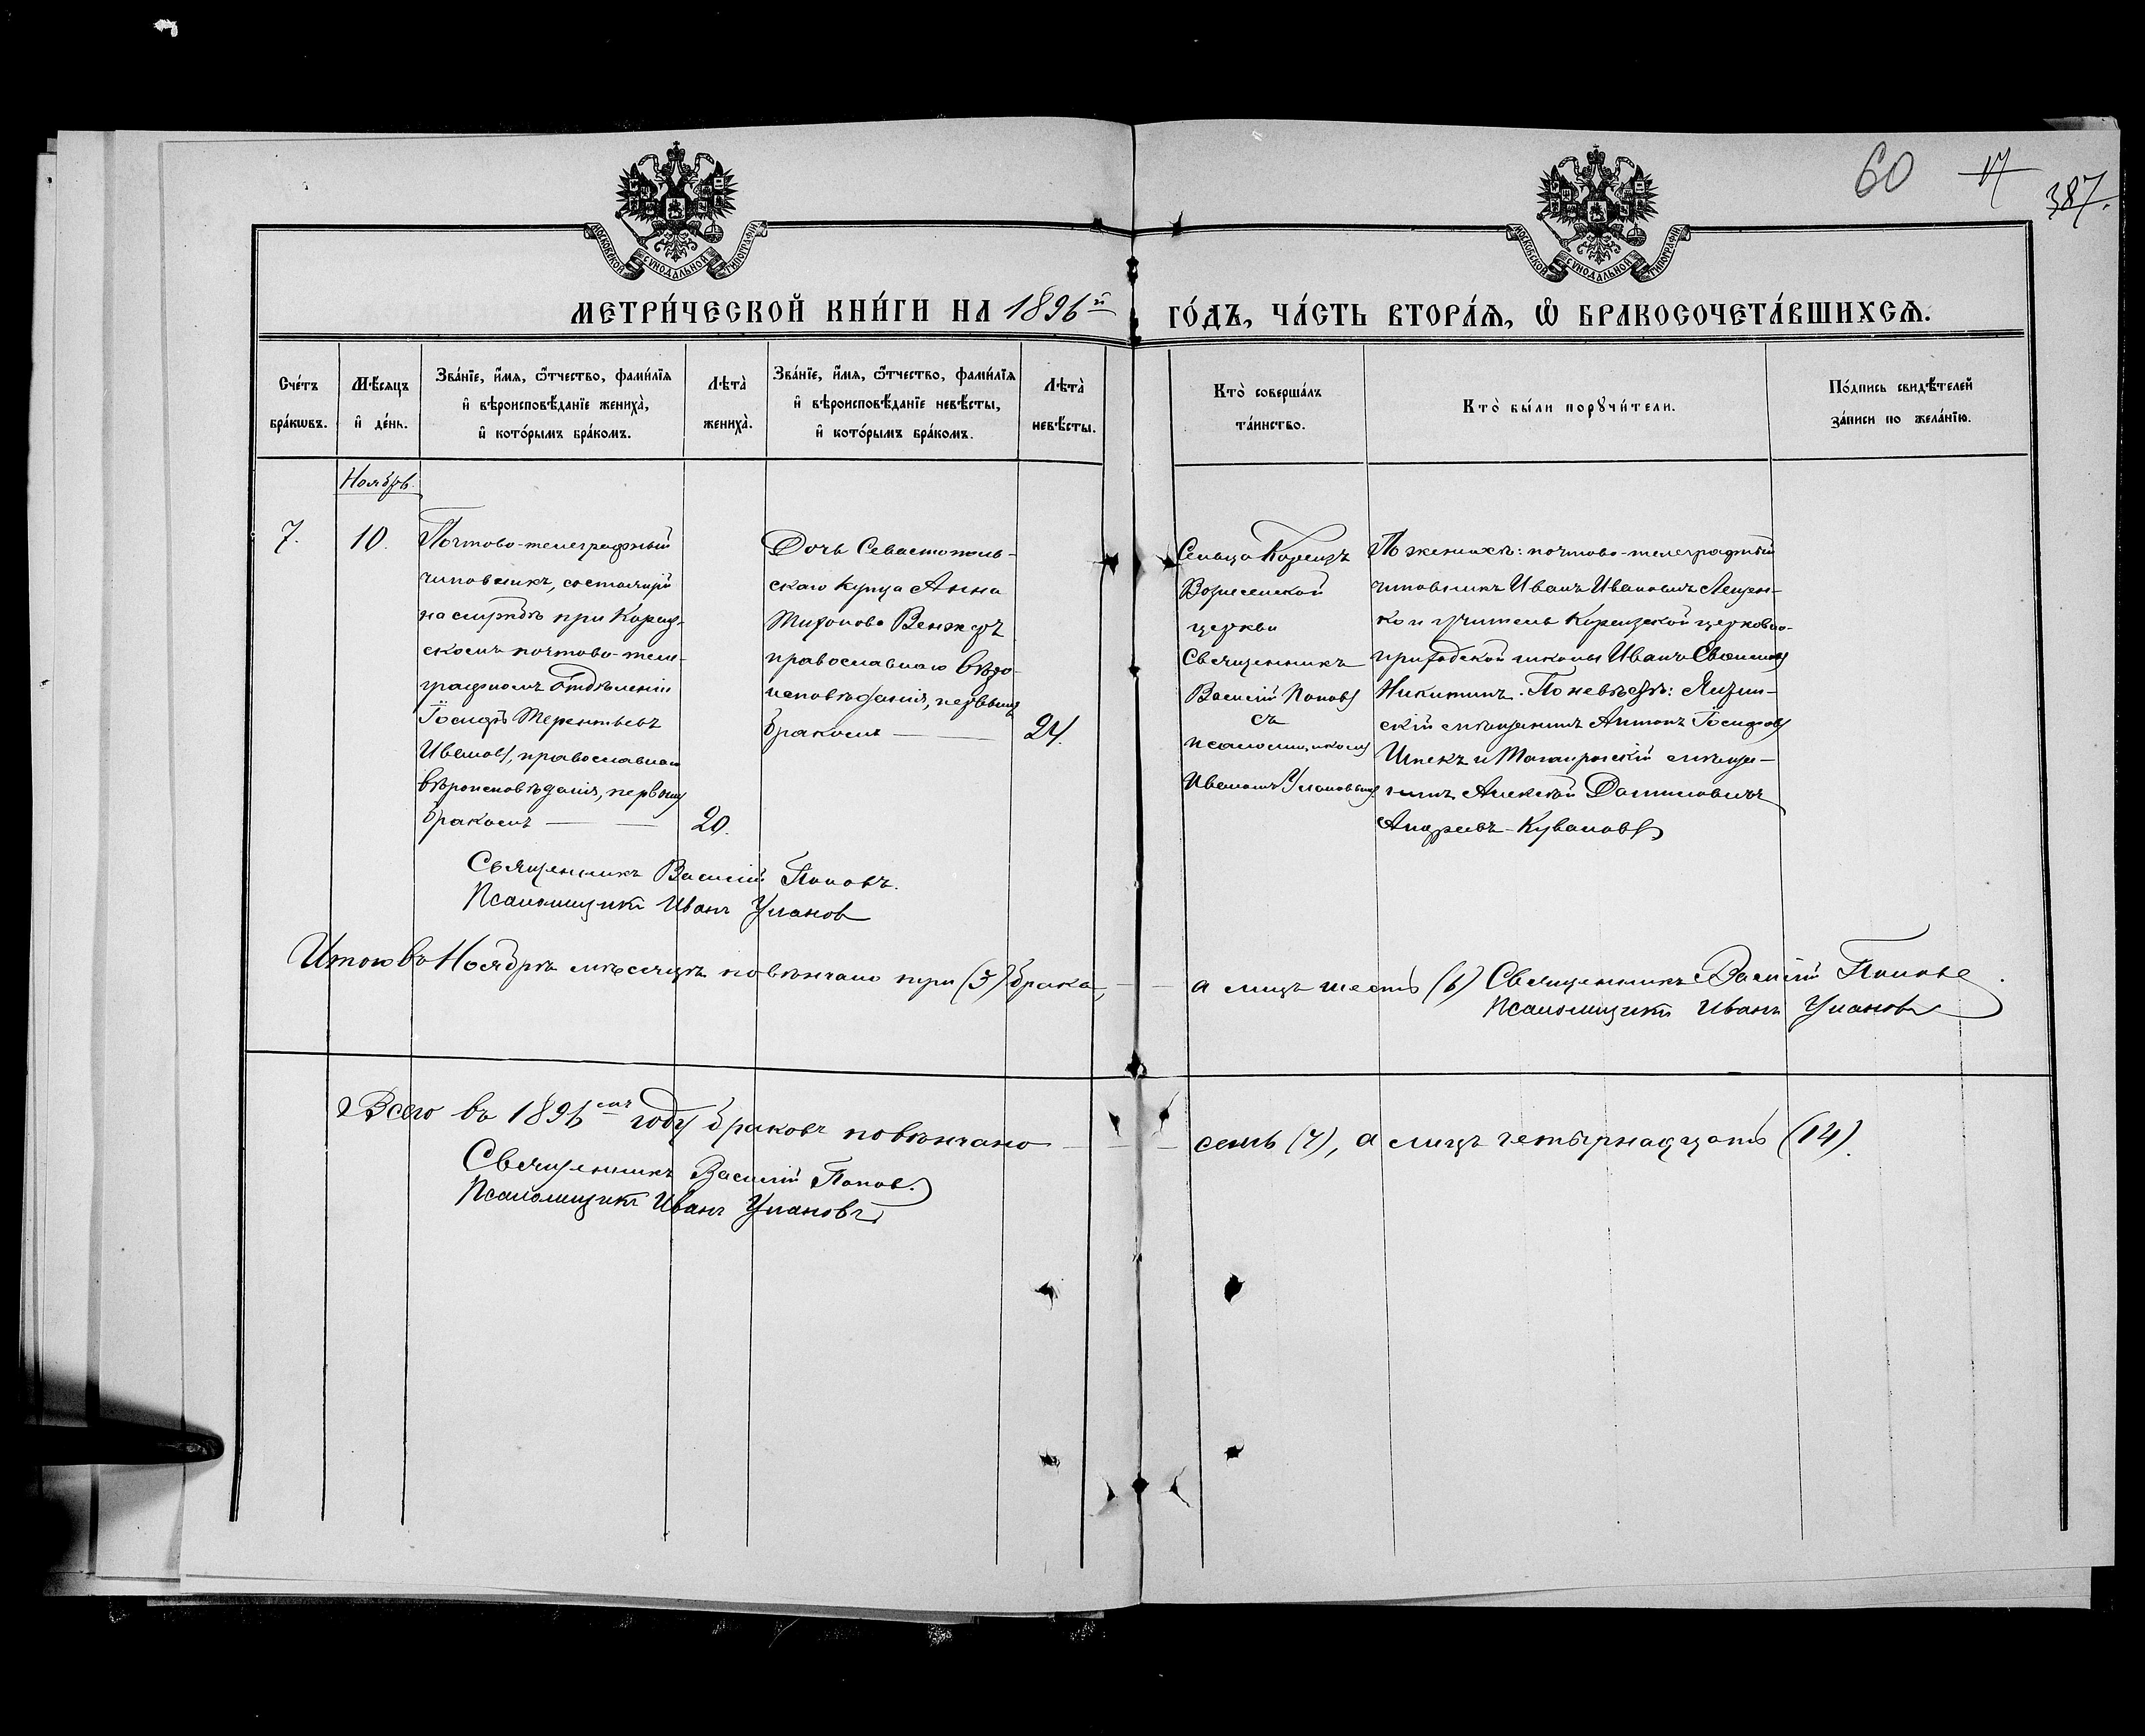 60 17 387.
МОСКОВСКОЙ СѴНОДАЛЬНОЙ ТИПОГРАФІИ
МОСКОВСКОЙ СѴНОДАЛЬНОЙ ТИПОГРАФІИ
МЕТРИ́ЧЕСКОЙ КНИ́ГИ НА 1896й ГО́ДЪ, ЧА́СТЬ ВТОРА́Ѧ, Ѽ БРАКОСОЧЕТА́ВШИХСѦ.
Сче́тъ
бра́кѡвъ.
Мѣ́сѧцъ
и҆ де́нь.
Зва́нїе, и҆́мѧ, ѻ҆́тчество, фами́лїѧ
и҆ вѣроисповѣ́данїе жениха̀,
и҆ кото́рымъ бра́комъ.
Лѣта̀
жениха̀.
Зва́нїе, и҆́мѧ, ѻ҆́тчество, фами́лїѧ
и҆ вѣроисповѣ́данїе невѣ́сты,
и҆ кото́рымъ бра́комъ.
Лѣта̀
невѣ́сты.
Кто̀ соверша́лъ
та́инство.
Кто̀ бы́ли порꙋчи́тели.
По́дпись свидѣ́телей
за́писи по жела́нїю.
Ноябрь.
7.
10.
Почтово-телеграфный
чиновникъ, состоящій
на службѣ при Кореиз-
скомъ почтово-теле-
графномъ Отдѣленіи
Іосифъ Терентьевъ
Ивановъ, православнаго
вѣроисповѣданія, первымъ
бракомъ —
20.
Дочь Севастополь-
скаго купца Анна
Тихонова Венжеръ
православнаго вѣро-
исповѣданія, первымъ
бракомъ —
24.
Сельца Кореизъ
Вознесенской
церкви
Священникъ
Василій Поповъ
съ
псаломщикомъ
Иваномъ Улановымъ
По женихѣ: почтово-телеграфный
чиновникъ Иванъ Ивановичъ Лещен-
ко и учитель Кореизской церковно-
приходской школы Иванъ
Никитинъ. По невѣстѣ: Ялтин-
скій мѣщанинъ Антонъ Іосифовъ
Шпекъ и Таганрогскій мѣща-
нинъ Алексѣй Даниловичъ
Андреевъ-Кувановъ.
Священникъ Василій Поповъ.
Псаломщикъ Иванъ Улановъ
Итого въ Ноябрѣ мѣсяцѣ повѣнчано три (3) брака, — а лицъ шесть (6) Священникъ Василій Поповъ
Псаломщикъ Иванъ Улановъ
Всего въ 1896мъ году браковъ повѣнчано — семь (7), а лицъ четырнадцать (14).
Священникъ Василій Поповъ.
Псаломщикъ Иванъ Улановъ